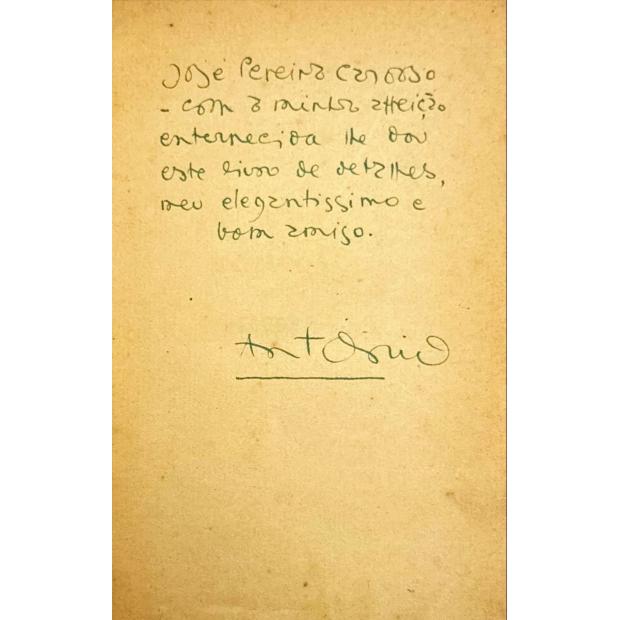 José Pereira Cardoso
- com a minha affeição
enternecida lhe dou
este livro de detalhes,
meu elegantissimo e
bom amigo.
António